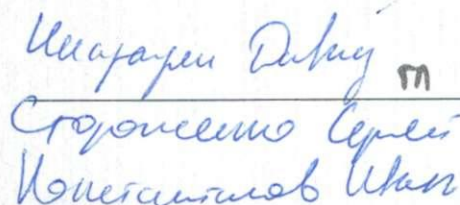 Давид
Стороженко Сергей
Константинов Иван